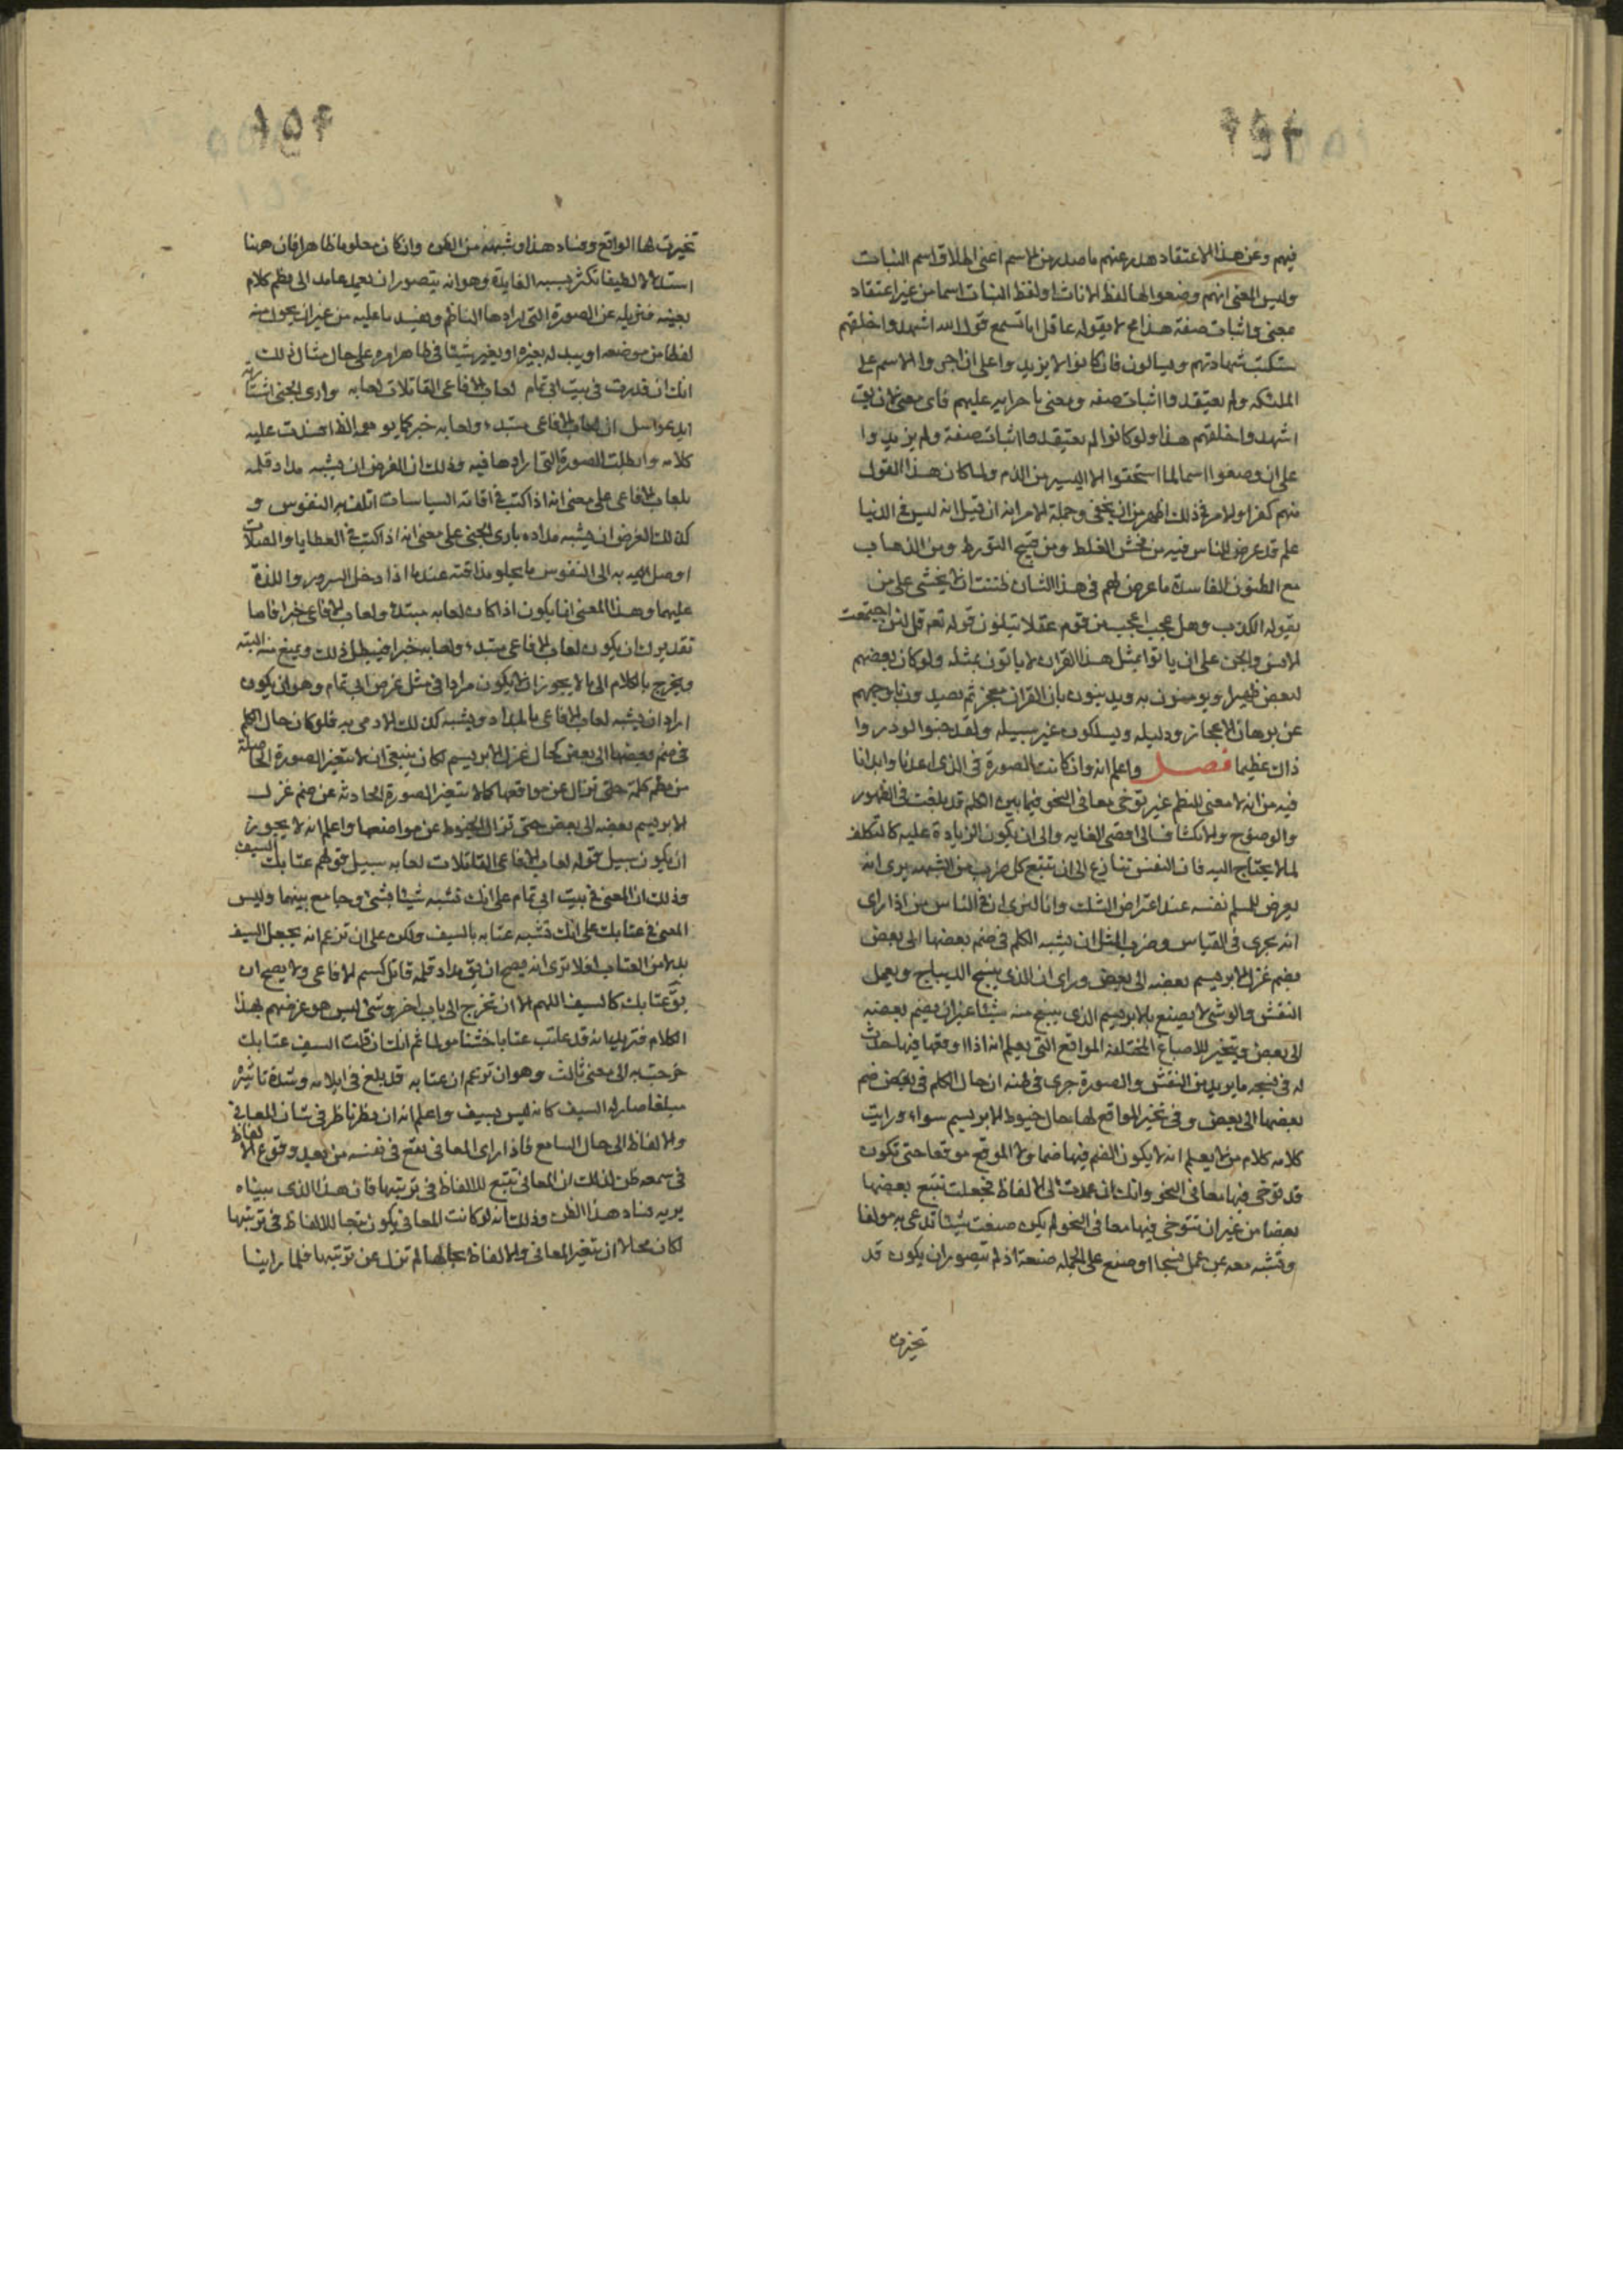 فيهم وعن هذا الاعتقاد صدر عنهم ما صدر من الاسم اعنى اطلاق اسم البنات
وليس المعنى انهم وضعوا لها لفظ الاناث او لفظ البنات اسما من غير اعتقاد
معنى واثبات صفة هذا مح لا يقوله عاقل اما تسمع قول الله اشهدوا خلقهم
ستكتب شهادتهم ويسالون فان كانوا لا يزيد واعلى ان اجروا الاسم على
الملئكه ولم يعتقدوا اثبات صفه ومعنى باجرايه عليهم فاى معنى لان يق
اشهدوا خلقهم هذا ولو كانوا لم يعتقدوا اثبات صفة ولم يزيدوا
على ان وضعوا اسما لما استحقوا الا اليسير من الذم ولما كان هذا القول
منهم كفرا والامر فى ذلك اظهر من ان يخفى وجملة الامر انه ان قيل انه ليس فى الدنيا
علم قد عرض للناس فيه من فحش الغلط ومن قبيح التورط ومن الذهاب
مع الظنون الفاسدة ما عرض لهم فى هذا الشان ظننت ان لا يخشى على من
يقوله الكذب وهل عجب اعجب من قوم عقلا يتلون قوله تعه قل لئن اجتمعت
الانس والجن على ان ياتوا بمثل هذا القران لا ياتون بمثله ولو كان بعضهم
لبعض ظهيرا ويومنون به ويدينون بان القران معجز ثم يصدون باوجههم
عن برهان الاعجاز ودليله ويسلكون غير سبيله ولقد جنوا لو دروا
ذاك عظيما فصل واعلم انه وان كانت الصورة فى الذى اعدنا وابدانا
فيه من انه لا معنى للنظم غير توخى معانى النحو فيما بين الكلم قد بلغت فى الظهور
والوضوح والانكشاف الى اقصى الغايه والى ان يكون الزيادة عليه كالتكلف
لما لا يحتاج اليه فان النفس تنازع الى ان تتبع كل ضرب من الشبهه يرى انه
يعرض للمسلم نفسه عند اعتراض الشك وانا لنرى ان فى الناس من اذا راى
انه يجرى فى القياس وضرب المثل ان يشبه الكلم فى ضم بعضها الى بعض
بضم غزل الابريسم بعضه الى بعض وراى ان الذى ينسج الديباج ويعمل
النقش والوشى لا يصنع بالابريسم الذى ينسج منه شيئا غير ان يضم بعضه
الى بعض ويتخير للاصباغ المختلفة المواقع التى يعلم انه اذا اوقعها فيها حدث
له فى نسجه ما يريد من النقش والصورة جرى فى ظنه ان حال الكلم فى بعض ضم
بعضها الى بعض وفى تخير المواقع لها حال خيوط الابريسم سواء ورايت
كلامه كلام من لا يعلم انه لا يكون الضم فيها ضما ولا الموقع موقعا حتى تكون
قد توخى فيها معانى النحو وانك ان عمدت الى الالفاظ فجعلت تتبع بعضها
بعضا من غير ان تتوخى فيها معانى النحو لم يكن صنعت شيئا تدعى به مولفا
وتشبه معه بمن عمل نسجا او صنع على الجمله صنعة اذ لم يتصور ان يكون قد
تخيرت
تخيرت لها المواقع وفساد هذا وشبهه من الظن وان كان معلوما ظاهرا فان هنا
استدلالا لطيفا تكثر بسببه الفايدة وهو انه يتصور ان يعمد عامد الى نظم كلام
بعينه فيزيله عن الصورة التى ارادها الناظم ويفسدها عليه من غير ان يحول منه
لفظا من موضعه او يبدله بغيره او يغير شيئا فى ظاهر امره على حال مثال ذلك
انك ان قدرت فى بيت ابى تمام لعاب الافاعى القاتلات لعابه وارى الجنى اشتارته
ايد عواسل ان لعاب الافاعى مبتدء ولعابه خبر كما يوهمه الظاهر افسدت عليه
كلامه وابطلت الصورة التى ارادها فيه وذلك ان الغرض ان يشبه مداد قلمه
بلعاب الافاعى على معنى انه اذا كتب فى اقامة السياسات اتلف به النفوس و
كذلك الغرض ان يشبه مداده بارى الجنى على معنى انه اذا كتب فى العطايا والصلات
اوصل به الى النفوس ما يحلو مذاقته عندها اذا دخل السرور واللذة
عليها وهذا المعنى انما يكون اذا كان لعابه مبتدء ولعاب الافاعى خبرا فاما
تقديرك ان يكون لعاب الافاعى مبتدء ولعابه خبرا فيبطل ذلك ويمنع منه البته
ويخرج بالكلام الى ما لا يجوز ان يكون مرادا فى مثل غرض ابى تمام وهو ان يكون
اراد ان يشبه لعاب الافاعى بالمداد ويشبه كذلك الارى به فلو كان حال الكلم
فى ضم بعضها الى بعض كحال غزل الابريسم لكان ينبغى ان لا يتغير الصورة الحاصلة
من نظم كلمه حتى تزال عن مواقعها كما لا يتغير الصورة الحادثه عن ضم غزل
الابريسم بعضه الى بعض حتى تزال الخيوط عن مواضعها واعلم انه لا يجوز
ان يكون سبيل قوله لعاب الافاعى القاتلات لعابه سبيل قولهم عتابك السيف
وذلك ان المعنى فى بيت ابى تمام على انك تشبه شيئا بشئ وجامع بينهما وليس
المعنى فى عتابك على انك تشبه عتابه بالسيف ولكن على ان تزعم انه يجعل السيف
بدلا من العتاب افلا ترى انه يصح ان يق مداد قلمه قاتل كسم الافاعى ولا يصح ان
يق عتابك كالسيف اللهم الا ان تخرج الى باب اخر وشئ ليس هو غرضهم بهذا
الكلام فتريد انه قد عاتب عتابا خشنا مولما ثم انك ان قلت السيف عتابك
خرجت به الى معنى ثالث وهو ان تزعم ان عتابه قد بلغ فى ايلامه وشدة تاثيره
مبلغا صار له السيف كانه ليس بسيف واعلم انه ان نظر ناظر فى شان المعانى
والالفاظ الى حال السامع فاذا راى المعانى تقع فى نفسه من بعد وقوع الالفاظ
فى سمعه ظن لذلك ان المعانى تتبع للالفاظ فى ترتيبها فان هذا الذى بيناه
يريه فساد هذا الظن وذلك انه لو كانت المعانى يكون تبعا للالفاظ فى ترتيبها
لكان محالا ان تتغير المعانى والالفاظ بحالها لم تزل عن ترتيبها فلما راينا